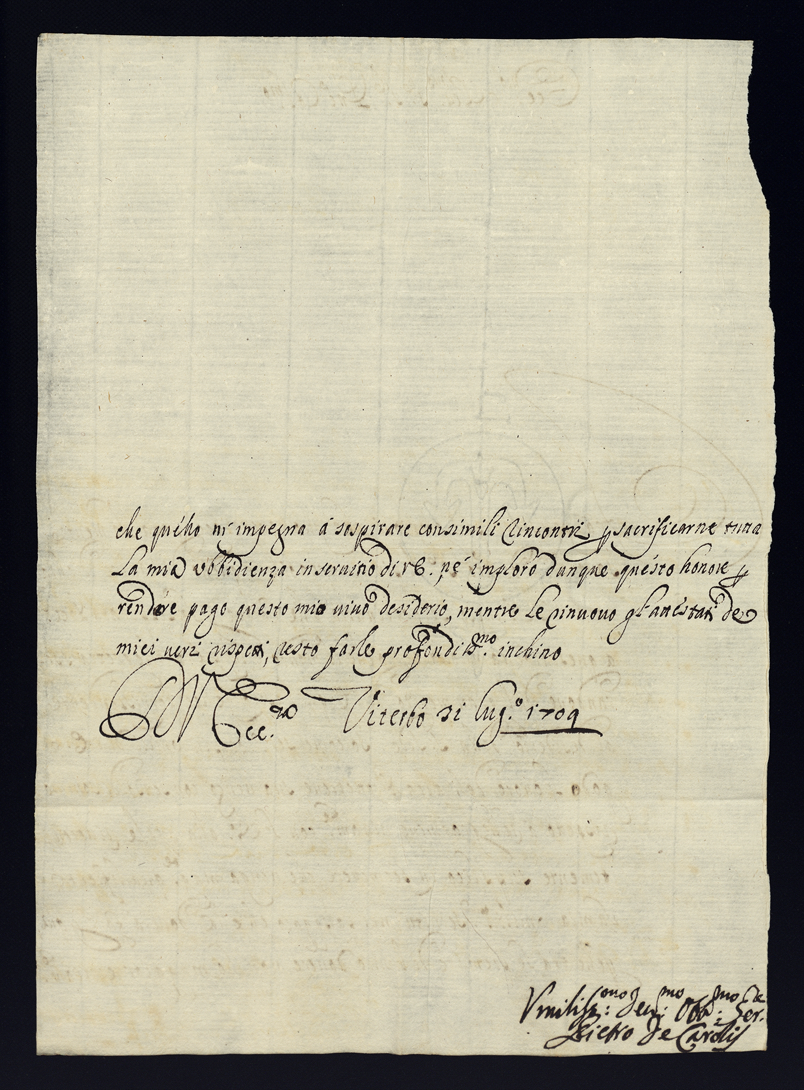 che quésto m'impegna á sospirare consimili rincontri, p sacrificarne tutta
La mia vbbidienza in seruitio di V.E. pé imploro dunque questo honore p
rendere pago questo mio uiuo desiderio, mentre Le rinuovo gl'attestati de
miei veri rispetti, resto farle profondiss.mo inchino
Ecc.mo Viterbo 31 Lug.o 1709
Vmiliss.mo Deu.mo Obb.mo Ser.
Pietro de Carolis